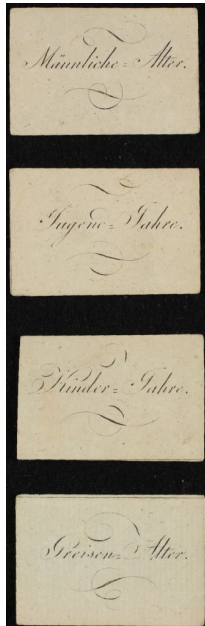 Männliche= Alter.
Jugend= Jahre.
Kinder= Jahre.
Greisen= Alter.